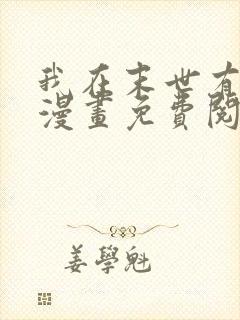 我在末世有
漫畫免費閱
姜學魁